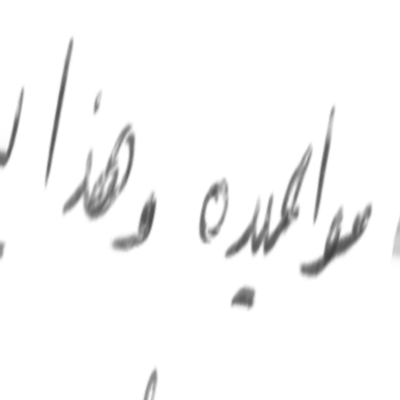 مواعيده وهذا